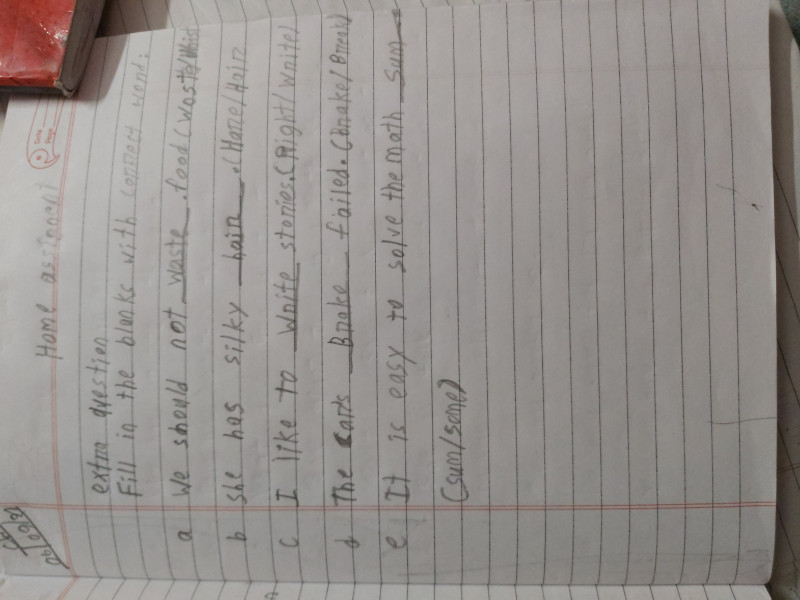 Home assignment
extra question
Fill in the blanks with correct word:
a We should not waste food (Waste/Waist
b she has silky hair. (Hare/Hair
c I like to Write stories. (Right/Write)
d The cars Brake failed. (Brake/Break)
e It is easy to solve the math sum
(sum/some)
Date
Page